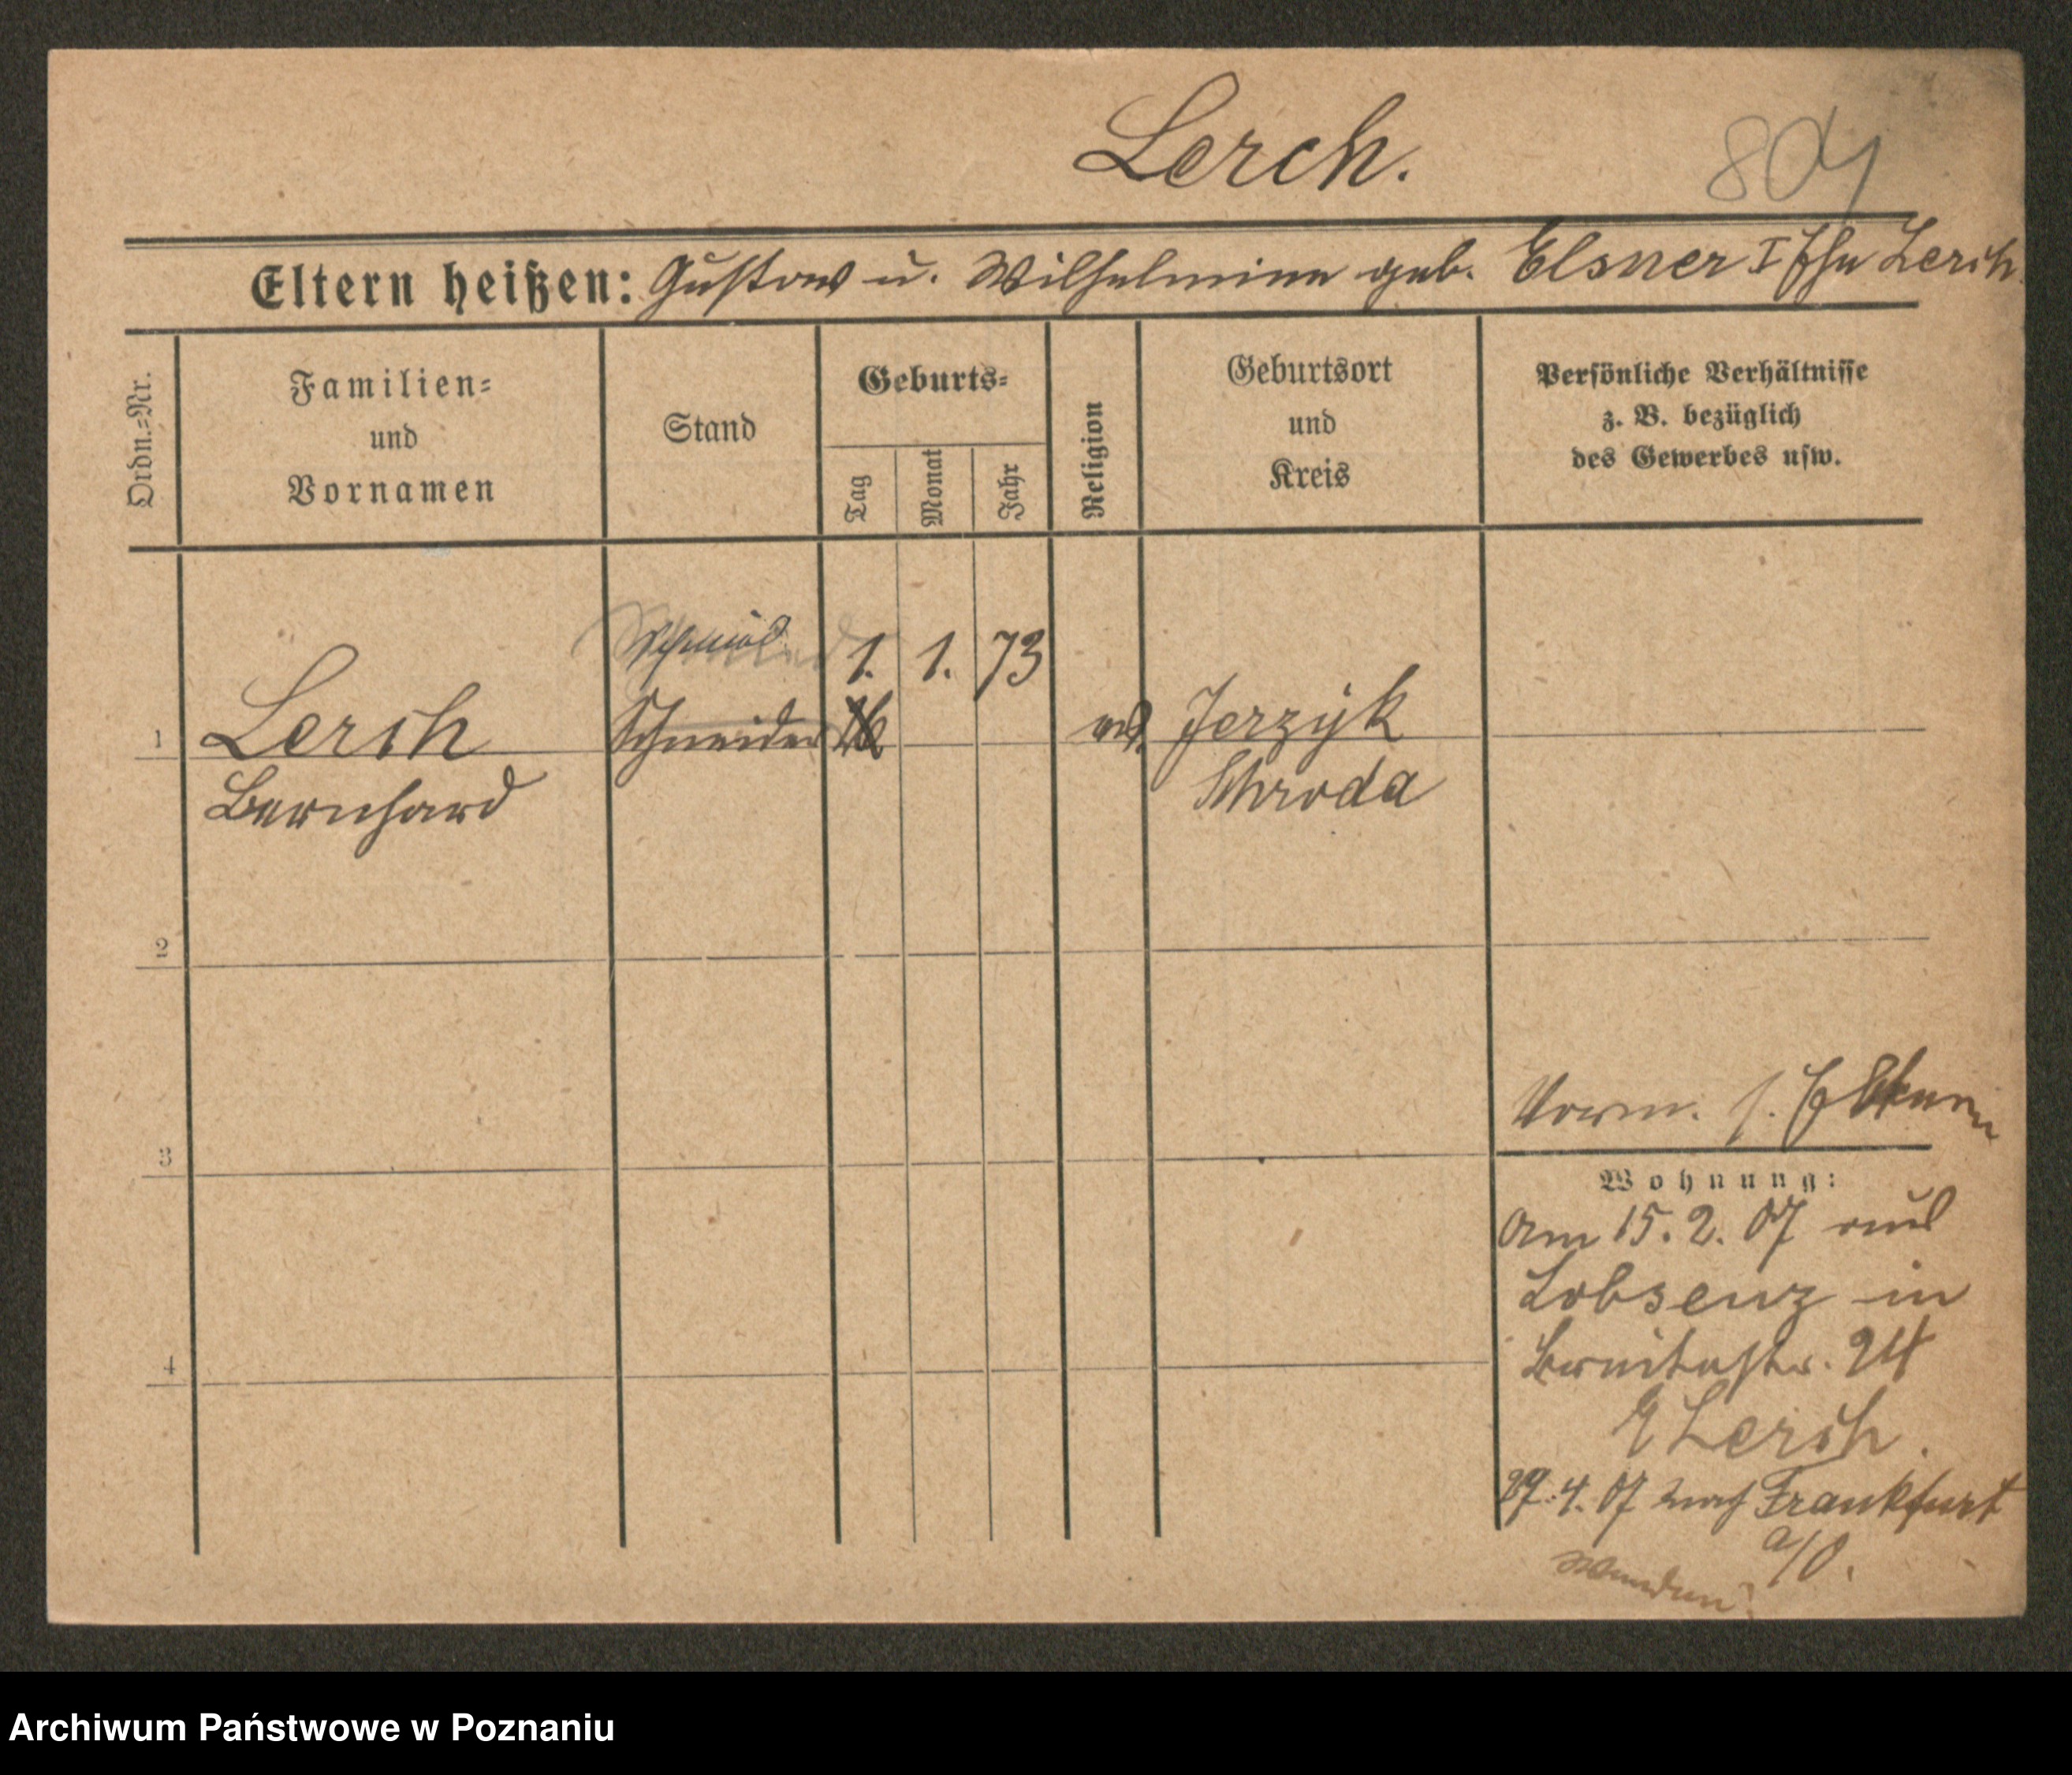 Lerch.
804
Eltern heißen: Gustav u. Wilhelmine geb. Elsner I Ehe Lerch
Ordn.-Nr.
Familien-
und
Vornamen
Stand
Geburts-
Tag
Monat
Jahr
Religion
Geburtsort
und
Kreis
Persönliche Verhältnisse
z. B. bezüglich
des Gewerbes usw.
1. 1. 73
1 Lerch Schneider Jerzyk
Bernhard Schroda
2
3
4
Wohnung:
Am 15. 2. 07 aus
Lobsenz in
24
Lerch.
29. 4. 07 nach Frankfurt
a/O.
Wenden
Archiwum Państwowe w Poznaniu